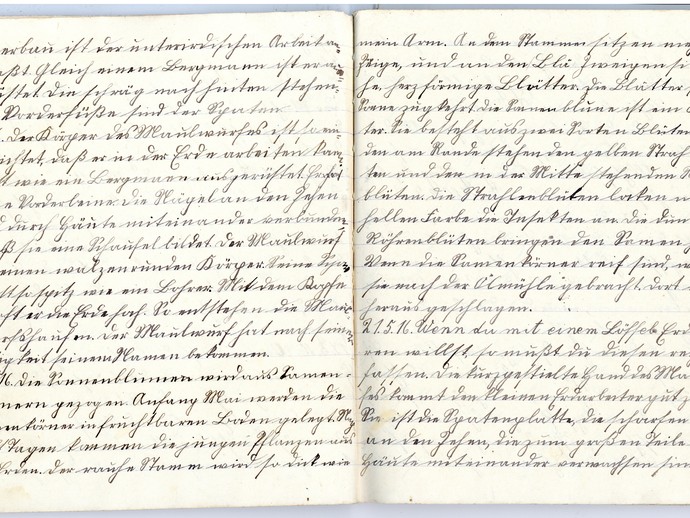 erbau ist der unterirdischen Arbeit a
aßt. Gleich einem Bergmann ist er a
üstet. Die schräg nach hinten stehen-
Vorderfüße sind der Spaten
. Der Körper des Maulwurfes ist, so ein-
richtet, daß er in der Erde arbeiten kan
t wie ein Bergmann ausgerüstet. Er hat
e Vorderbeine. Die Nägel an den Zehen
d durch Häute miteinander verbunden,
ß sie eine Schaufel bildet. Der Maulwurf
einen walzenrunden Körper. Seine
ist so spitz wie ein Bohrer. Mit dem Kopfe
er die Erde hoch. So entstehen die Maul-
rfshaufen. Der Maulwurf hat nach seiner
igkeit seinem Namen bekommen.
16. Die Sonnenblumen wird aus Samen-
nern gezogen. Anfang Mai werden die
enkörner in fruchtbaren Boden gelegt.
Tagen kommen die jungen Pflanzen aus
Erden. Der rauhe Stamm wird so dick wie
mein Arm. An dem Stamme sitzen
Zweige, und an den Zweigen
he, herzförmige Blätter. Die Blätter
Sonne zugekehrt. Die Sonnenblume ist ein
ter. Sie besteht aus zwei Sorten Blüten
den am Rande stehenden gelben Strah
ten und den in der Mitte stehenden
blüten. Die Strahlenblüten locken
hellen Farbe die Insekten an. Die
Röhrenblüten bringen den Samen
Wenn die Samenkörner reif sind, w
sie nach der Ölmühle gebracht. Dort
herausgeschlagen.
21.5.16. Wenn du mit einem Löffel Erd
ren willst, so mußt du diesen
fassen. Die kurzgestielte Hand des Ma
fes kommt den kleinen Erdarbeiter gut z
Sie ist die Spatenplatte, die scharfen
an den Zehen, die zum großen Teile
Häute miteinander verwachsen sin